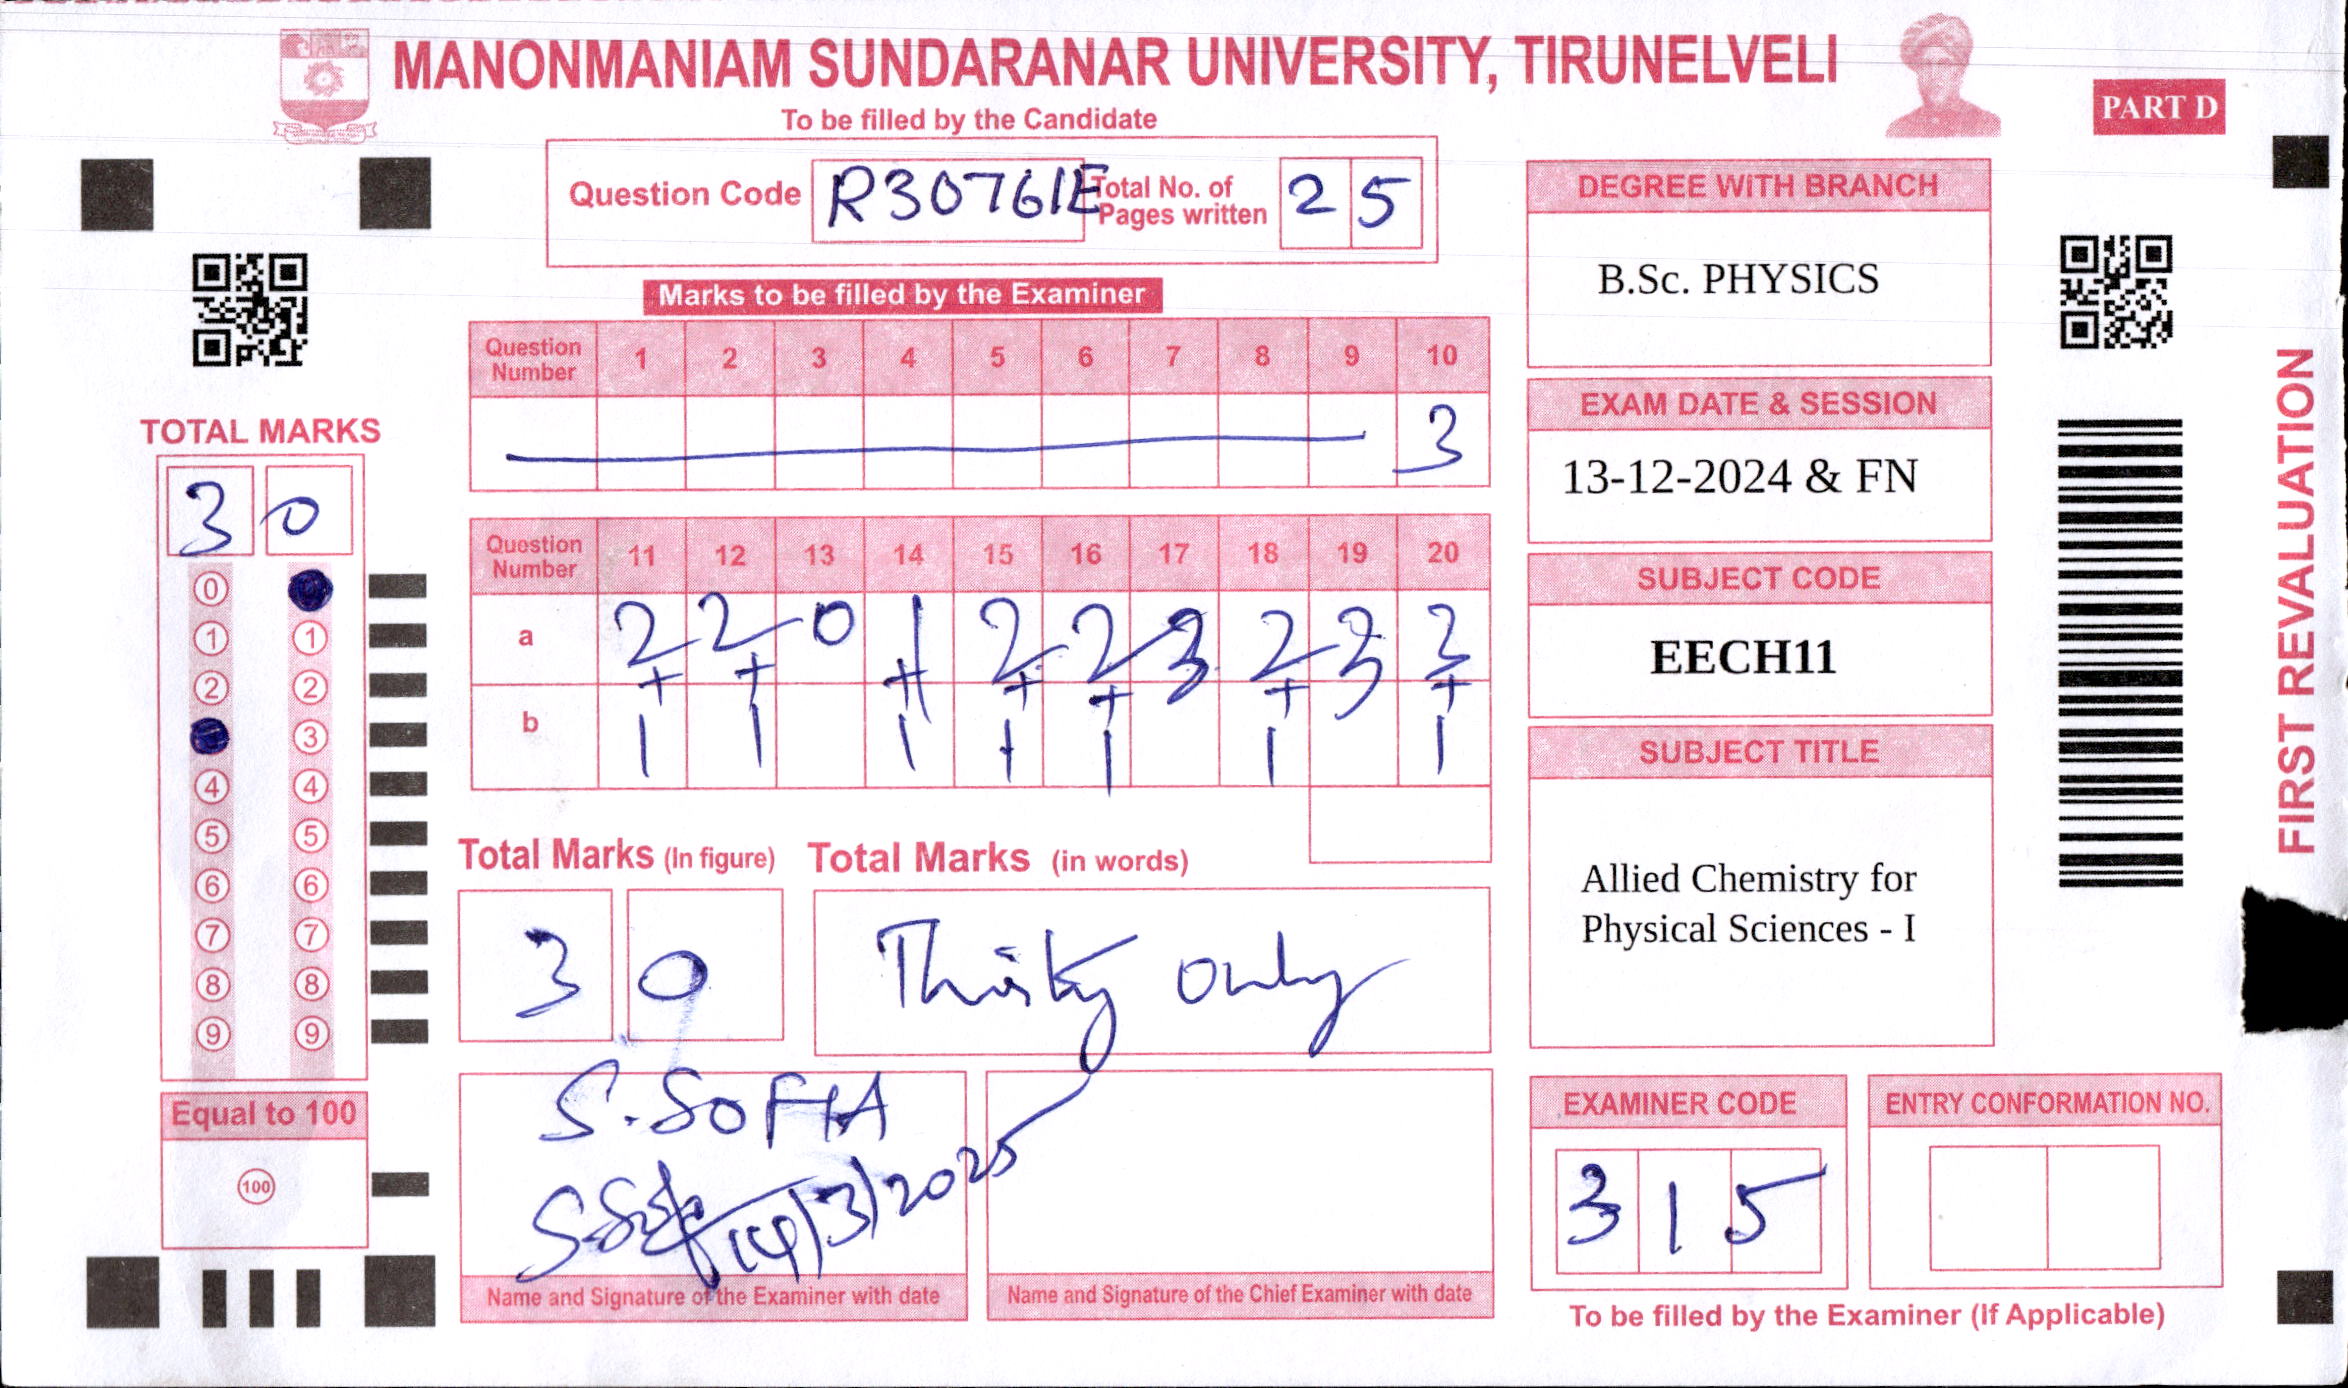 MANONMANIAM SUNDARANAR UNIVERSITY, TIRUNELVELI
PART D
To be filled by the Candidate
Question Code R30761E Total No. of Pages written 25
Marks to be filled by the Examiner
Question Number 1 2 3 4 5 6 7 8 9 10
3
Question Number 11 12 13 14 15 16 17 18 19 20
a 2 2 0 1 2 2 3 2 3
+ + + + + + +
b 1 1 1 1 1 1 1
TOTAL MARKS
30
0
1 1
2 2
3
4 4
5 5
6 6
7 7
8 8
9 9
Equal to 100
100
Total Marks (In figure) Total Marks (in words)
30 Thirty Only
S. SOFIA
14/3/2025
Name and Signature of the Examiner with date
Name and Signature of the Chief Examiner with date
DEGREE WITH BRANCH
B.Sc. PHYSICS
EXAM DATE & SESSION
13-12-2024 & FN
SUBJECT CODE
EECH11
SUBJECT TITLE
Allied Chemistry for
Physical Sciences - I
EXAMINER CODE
315
ENTRY CONFORMATION NO.
To be filled by the Examiner (If Applicable)
FIRST REVALUATION